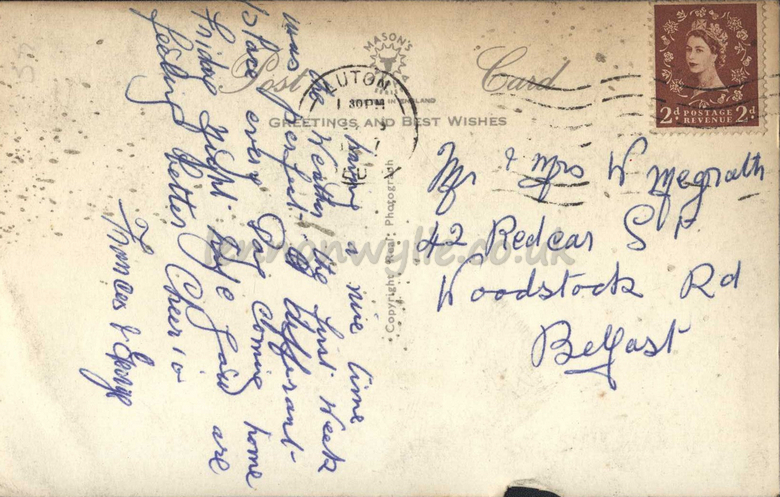 MASON'S
ALPHA
SERIES
Post Card
MADE IN ENGLAND
GREETINGS AND BEST WISHES
LUTON
1 30PM
2d POSTAGE REVENUE 2d
Copyright Real Photograph
Having a nice time
the Weather the first week
was perfect a different
place every Day coming home
Friday Night hope you are
feeling better Cheerio
Frances & George
Mr & Mrs W Megrath
42 Redcar St
Woodstock Rd
Belfast
lennonwylie.co.uk